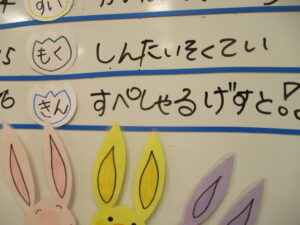 すい
もく しんたいそくてい
きん すぺしゃるげすと!?